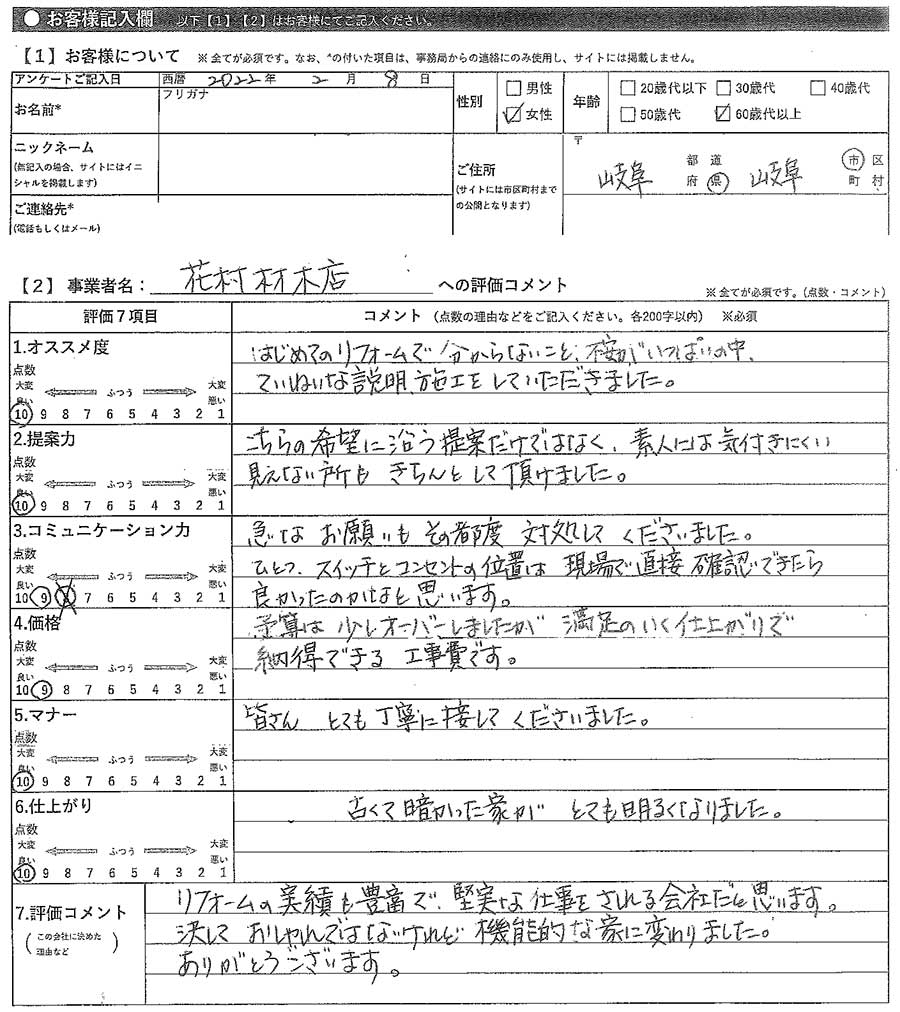 ● お客様記入欄 以下【1】【2】はお客様にてご記入ください。
【1】お客様について ※全てが必須です。なお、*の付いた項目は、事務局からの連絡にのみ使用し、サイトには掲載しません。
アンケートご記入日 西暦 2022 年 2 月 8 日
お名前* フリガナ
性別 □男性 ☑女性
年齢 □20歳代以下 □30歳代 □40歳代
□50歳代 ☑60歳代以上
ニックネーム
(無記入の場合、サイトにはイニ
シャルを掲載します)
ご連絡先*
(電話もしくはメール)
ご住所
(サイトには市区町村まで
の公開となります)
〒
岐阜 都道府県 岐阜 市区町村
【2】事業者名： 花村材木店 への評価コメント
※全てが必須です。(点数・コメント)
評価7項目 コメント (点数の理由などをご記入ください。各200字以内) ※必須
1.オススメ度
点数
大変良い ふつう 大変悪い
10 9 8 7 6 5 4 3 2 1
はじめてのリフォームで分からないこと、不安がいっぱいの中、
ていねいな説明、施工をしていただきました。
2.提案力
点数
大変良い ふつう 大変悪い
10 9 8 7 6 5 4 3 2 1
こちらの希望に沿う提案だけではなく、素人には気付きにくい
見えない所も きちんとして頂けました。
3.コミュニケーション力
点数
大変良い ふつう 大変悪い
10 9 8 7 6 5 4 3 2 1
急なお願いもその都度 対処してくださいました。
ひとつ、スイッチとコンセントの位置は現場で直接確認できたら
良かったのかなと思います。
4.価格
点数
大変良い ふつう 大変悪い
10 9 8 7 6 5 4 3 2 1
予算は少しオーバーしましたが 満足のいく仕上がりで
納得できる工事費です。
5.マナー
点数
大変良い ふつう 大変悪い
10 9 8 7 6 5 4 3 2 1
皆さん とても丁寧に接してくださいました。
6.仕上がり
点数
大変良い ふつう 大変悪い
10 9 8 7 6 5 4 3 2 1
古くて暗かった家が とても明るくなりました。
7.評価コメント
(この会社に決めた
理由など)
リフォームの実績も豊富で、堅実な仕事をされる会社だと思います。
決して おしゃれではないけれど 機能的な家に変わりました。
ありがとうございます。